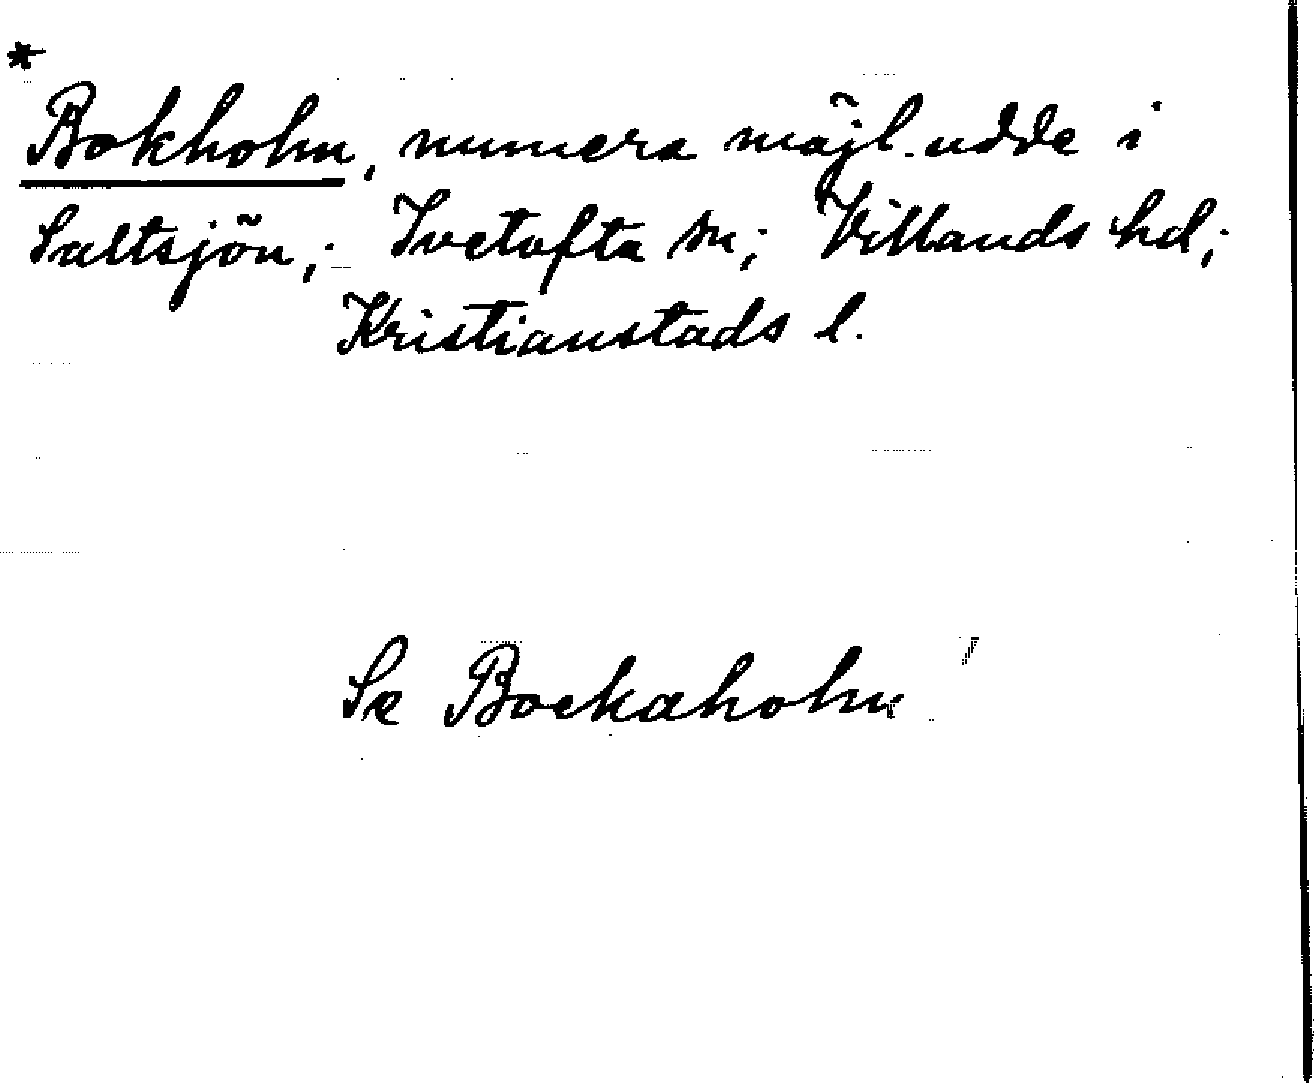 *
Bokholm, numera möjl. udde i
Saltsjön; Ivetofta sn; Villands hd;
Kristianstads l.
Se Bockaholm